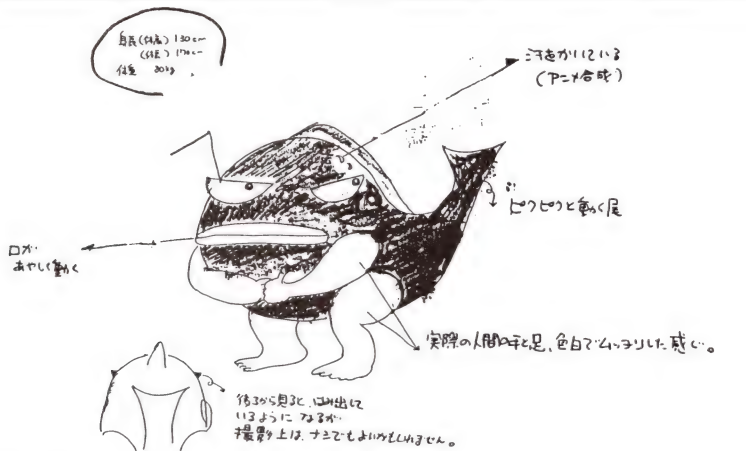 身長(体高) 130cm
(体長) 170cm
体重 80kg
汗をかいている
(アニメ合成)
ピクピクと動く尾
口が
あやしく動く
実際の人間の手と足、色白でムッチリした感じ。
後ろから見ると、はみ出して
いるようになるが
撮影上は、ナシでもよいかもしれません。